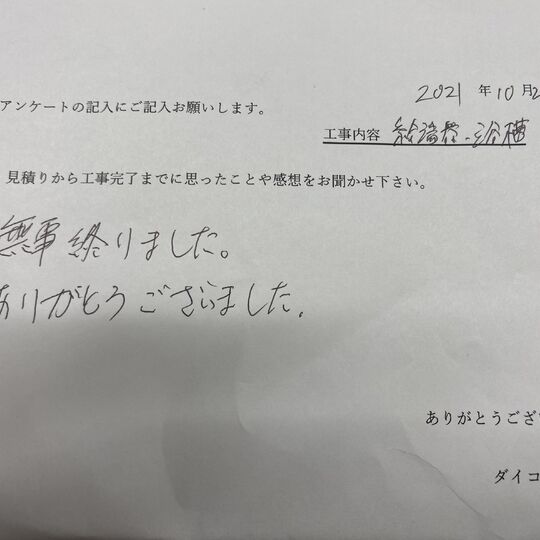 2021 年 10 月2
アンケートの記入にご記入お願いします。
工事内容 給湯器-浴槽
見積りから工事完了までに思ったことや感想をお聞かせ下さい。
無事終りました。
ありがとうございました。
ありがとうござ
ダイコ